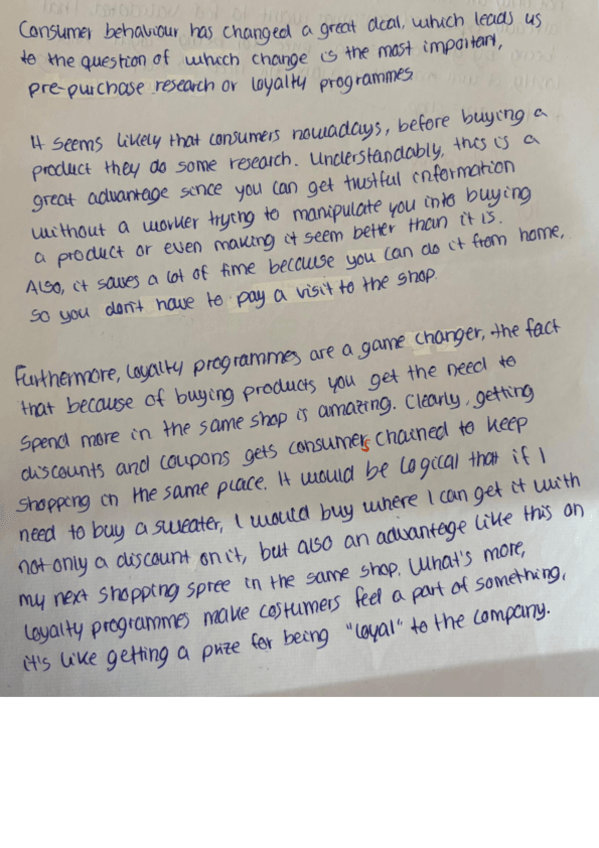 Consumer behaviour has changed a great deal, which leads us
to the question of which change is the most important,
pre-purchase research or loyalty programmes.
It seems likely that consumers nowadays, before buying a
product they do some research. Understandably, this is a
great advantage since you can get trustful information
without a worker trying to manipulate you into buying
a product or even making it seem better than it is.
Also, it saves a lot of time because you can do it from home,
so you don't have to pay a visit to the shop.
Furthermore, loyalty programmes are a game changer, the fact
that because of buying products you get the need to
spend more in the same shop is amazing. Clearly, getting
discounts and coupons gets consumers chained to keep
shopping in the same place. It would be logical that if I
need to buy a sweater, I would buy where I can get it with
not only a discount on it, but also an advantage like this on
my next shopping spree in the same shop. What's more,
loyalty programmes make costumers feel a part of something,
it's like getting a prize for being "loyal" to the company.